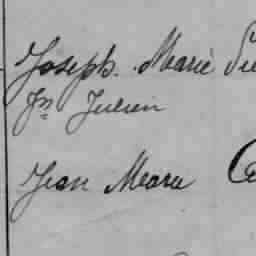 Joseph. Marie
Jn Julien
Jean Marie